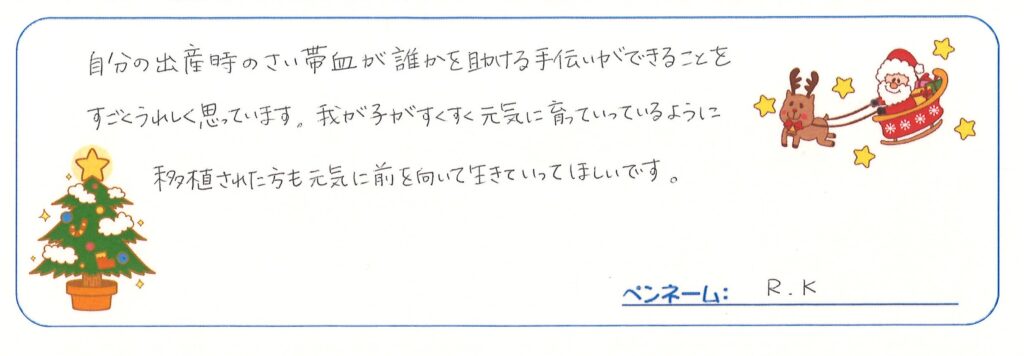 自分の出産時のさい帯血が誰かを助ける手伝いができることを
すごくうれしく思っています。我が子がすくすく元気に育っていっているように
移植された方も元気に前を向いて生きていってほしいです。
ペンネーム: R.K